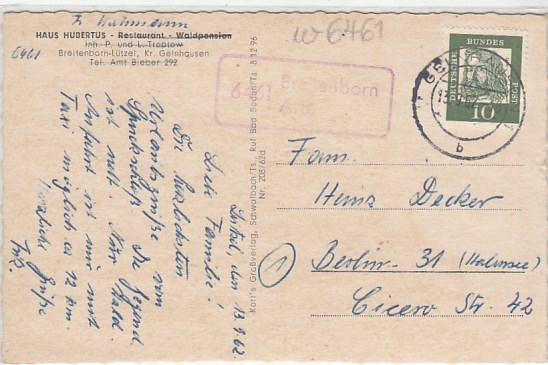 w 6461
HAUS HUBERTUS - Restaurant - Waldpension
Inh. P. und L. Treptow
Breitenborn-Lützel, Kr. Gelnhausen
Tel. Amt Bieber 292
6461
6461 Breitenborn
DEUTSCHE BUNDESPOST
10
b
Karl's Großverlag, Schwalbach/Ts., Ruf Bad Soden/Ts. 8 12 96
Nr. 205/62d
Lützel, den 13.9.62
Liebe Familie!
Die herzlichsten
Urlaubsgrüße vom
Spessart. Die Gegend
ist nett. Nur Wald.
Anfahrt ist nur mit
Taxi möglich ca 12 km.
Herzliche Grüße
Fam.
Heinz Decker
Berlin-31 (Halensee)
Cicero Str. 42